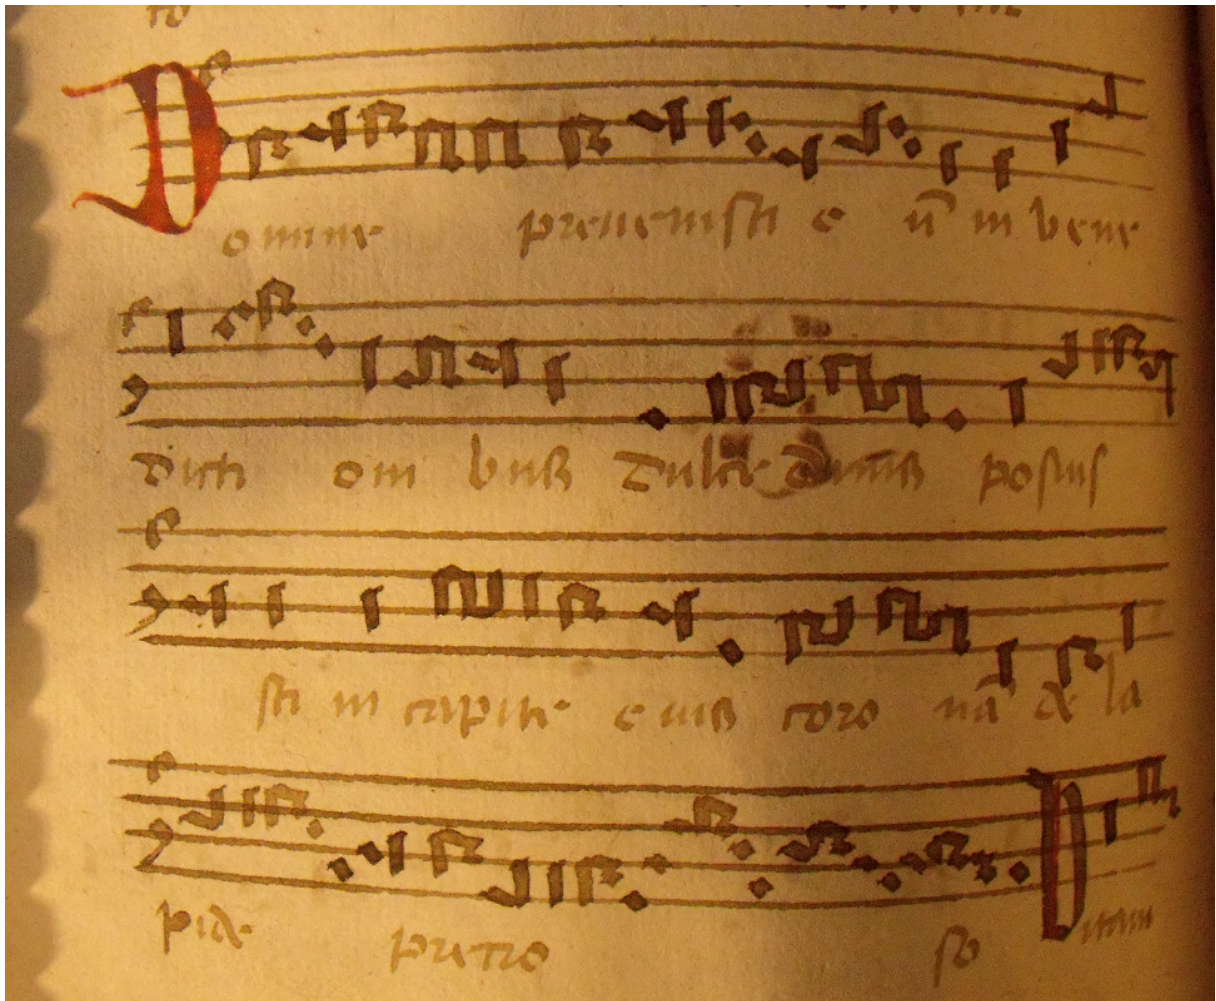 Domine prevenisti e ū in bene
dicti oni bus dulce dinis posuis
sti in capite e ius coro nā de la
pide precio so Vitam